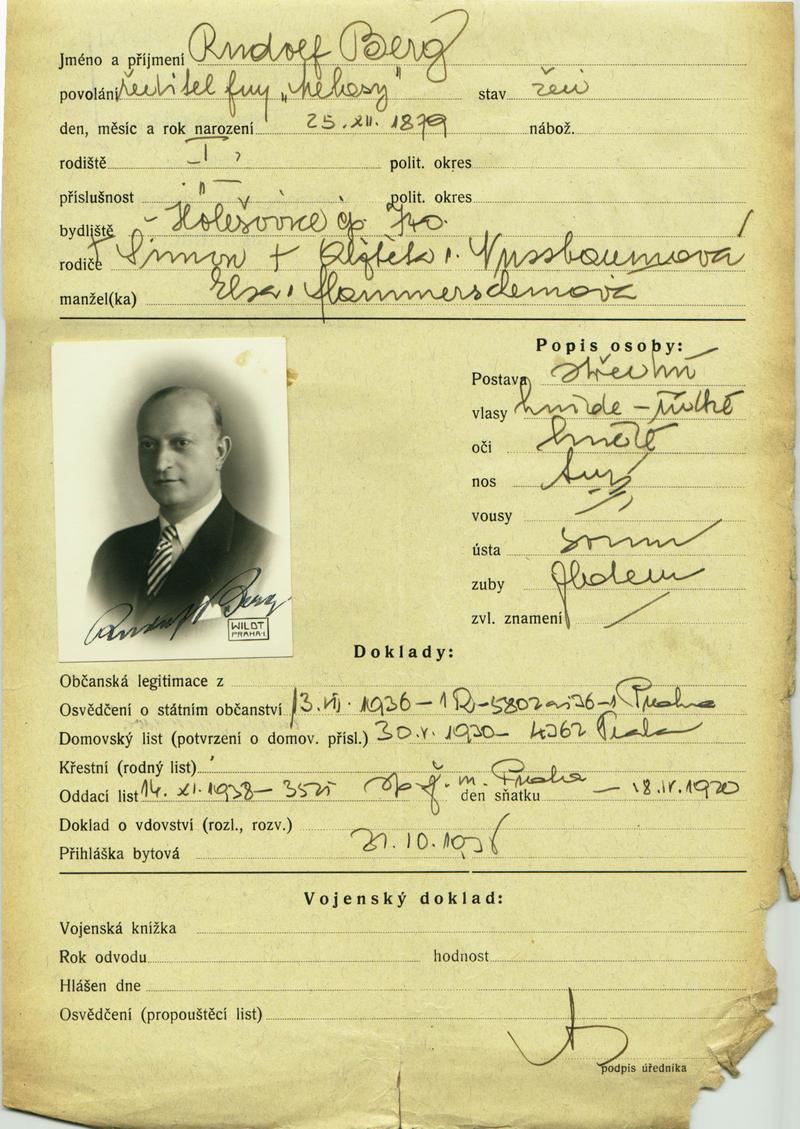 Jméno a příjmení Rudolf Berg
povolání ředitel fmy „ " stav žen
den, měsíc a rok narození 25.XII.1879 nábož.
rodiště I polit. okres
příslušnost " — polit. okres
bydliště Holešovice čp.
rodiče Simon + Alžběta r. Nussbaumová
manžel(ka) Elsa r.
Popis osoby:
Postava střední
vlasy hnědé - řídké
oči hnědé
nos
vousy
ústa souměr
zuby
zvl. znamení /
WILDT
PRAHA-I
Rudolf Berg
Doklady:
Občanská legitimace z
Osvědčení o státním občanství 13.VII.1936 – Praha
Domovský list (potvrzení o domov. přísl.) 30.V.1930 – 4362 Praha
Křestní (rodný list)
Oddací list 14. XI. 1938 – Praha den sňatku – 18.IV.1920
Doklad o vdovství (rozl., rozv.)
Přihláška bytová 31.10.1936
Vojenský doklad:
Vojenská knížka
Rok odvodu hodnost
Hlášen dne
Osvědčení (propouštěcí list)
podpis úředníka